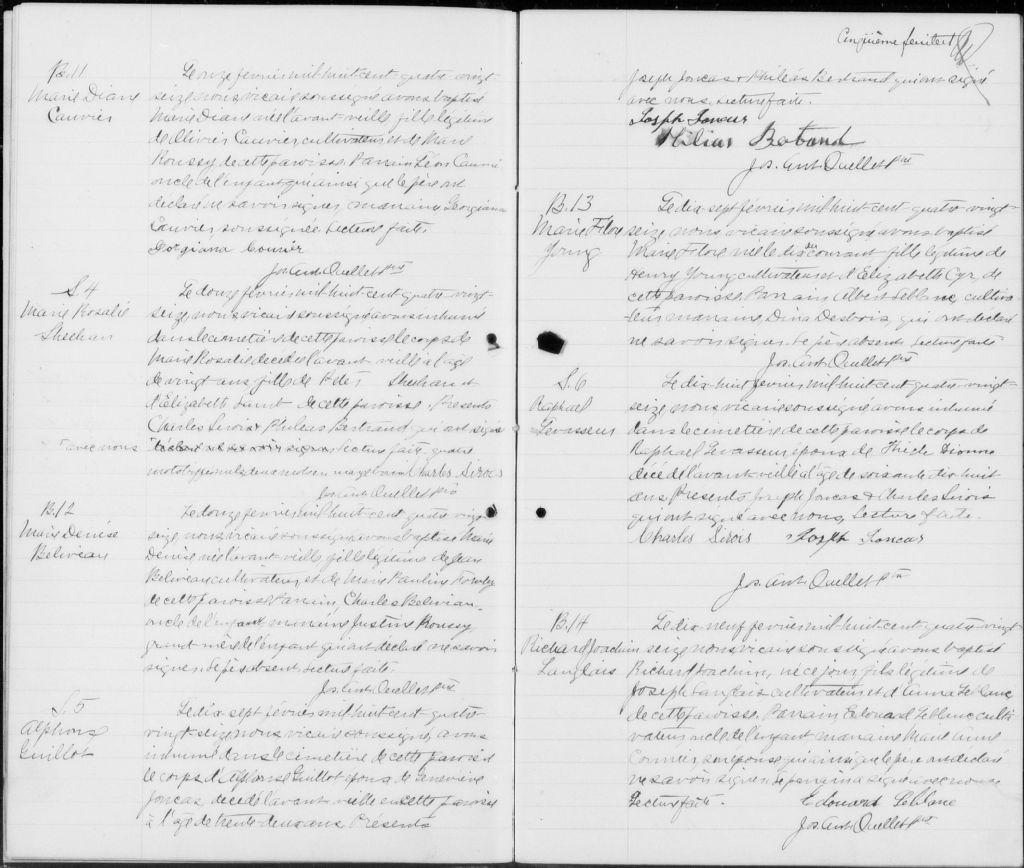 B.11
Marie Diane
Cauvier
Le onze fevrier mil huit cent quatre vingt
seize nous vicaire soussigné avons baptisé
Marie Diane née l'avant-veille fille légitime
de Olivier Cauvier cultivateur et de Marie
Roussy de cette paroisse. Parrain Léon Cauvier
oncle de l'enfant qui ainsi que le père ont
declaré ne savoir signer, marraine Georgiana
Cauvier soussignée. Lecture faite.
Gorgiana Couvier
Jos. Ant. Ouellet Ptre
S.4
Marie Rosalie
Sheehan
Le douze fevrier mil huit cent quatre vingt-
seize, nous vicaire soussigné avons inhumé
dans le cimetière de cette paroisse le corps de
Marie Rosalie decedée l'avant veille à l'age
de vingt ans fille de Sheehan et
d'Elizabeth de cette paroisse. Presents
Charles Sirois & Phileas Bertrand qui ont signé
"avec nous lecture faite quatre
mots rayés nuls en marge bon. Charles Sirois
Jos. Ant. Ouellet Ptre
B.12
Marie Denise
Beliveau
Le douze fevrier mil huit cent quatre vingt
seize nous vicaire soussigné avons baptisé Marie
Denise née l'avant-veille fille légitime de Jean
Beliveau cultivateur, et de Marie Pauline
de cette paroisse Parrain, Charles Beliveau
oncle de l'enfant marraine Justine Roussy,
grand-mère de l'enfant qui ont declaré ne savoir
signer le père absent. Lecture faite.
Jos. Ant. Ouellet Ptre
S.5
Alphonse
Guillot
Le dix sept fevrier mil huit cent quatre
vingt-seize, nous vicaire soussigné, avons
inhumé dans le cimetière de cette paroisse
le corps d'Alphonse Guillot epoux de Genevieve
Joncas decedé l'avant veille en cette paroisse
à l'age de trente deux ans Présents
Cinquième feuillet
Joseph Joncas & Philéas Bertrand qui ont signé
avec nous. Lecture faite.
Joseph Joncas
Philias Betrand
Jos. Ant. Ouellet Ptre
B.13
Marie Flore
Young
Le dix-sept février mil huit cent quatre vingt-
seize, nous vicaire soussigné avons baptisé
Marie Flore née le dix du courant, fille légitime de
Henry Young cultivateur et d'Elizabeth Cyr, de
cette paroisse. Parrain Albert Leblanc, cultiva-
teur marraine, Dina Desbois, qui ont declaré
ne savoir signer. Le père absent. Lecture faite
Jos. Ant. Ouellet Ptre
S.6
Raphael
Levasseur
Le dix-huit fevrier mil huit cent quatre-vingt-
seize nous vicaire soussigné avons inhumé
dans le cimetière de cette paroisse le corps de
Raphael Levasseur époux de Dionne
décédé l'avant-veille à l'age de soixante dix huit
ans. Presents Joseph Joncas & Charles Sirois
qui ont signé avec nous, Lecture faite.
Charles Sirois Joseph Joncas
Jos. Ant. Ouellet Ptre
B.14
Richard Joachim
Langlois
Le dix-neuf fevrier mil huit-cent quatre vingt
seize nous vicaire soussigné avons baptisé
Richard Joachim, né ce jour, fils légitime de
Joseph Langlois cultivateur et d'Anna Leblanc
de cette paroisse. Parrain Edouard Leblanc culti-
vateur oncle de l'enfant marraine Marie Anne
Cormier son épouse qui ainsi que le père ont declaré
ne savoir signer, le parrain a signé avec nous
Lecture faite.
Edouard Leblanc
Jos. Ant. Ouellet Ptre